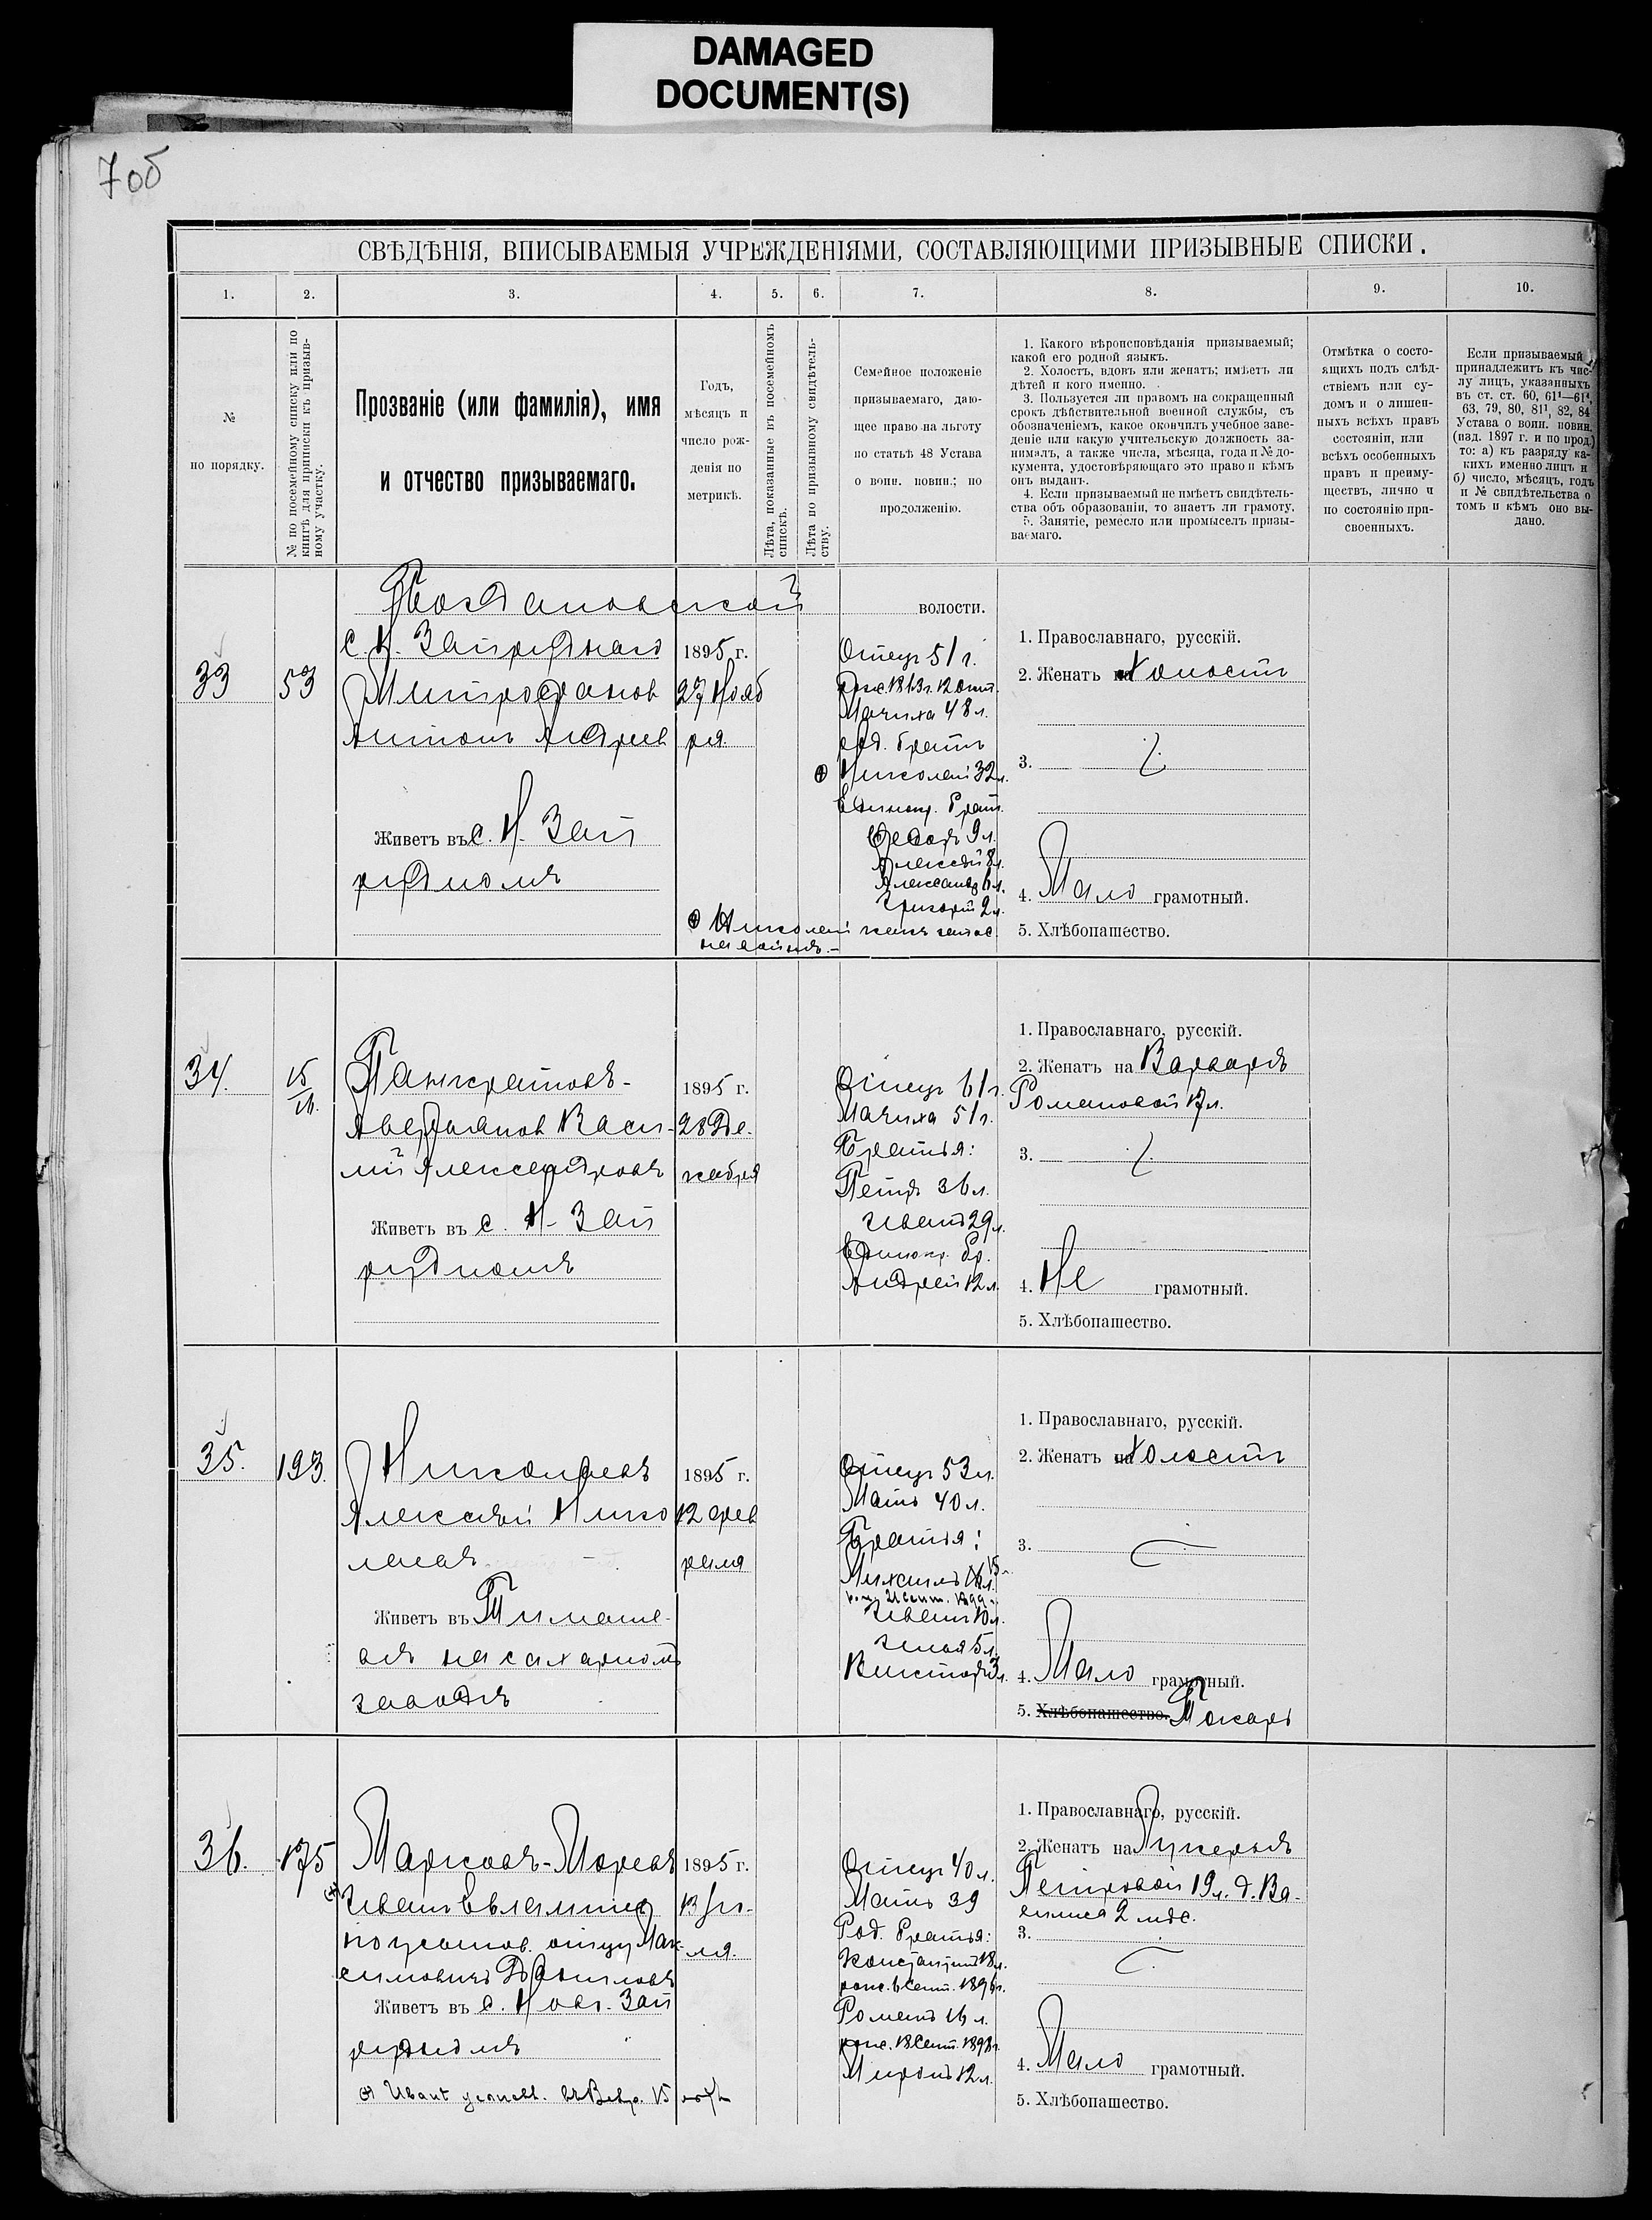 DAMAGED
DOCUMENT(S)
7об
СВѢДѢНІЯ, ВПИСЫВАЕМЫЯ УЧРЕЖДЕНІЯМИ, СОСТАВЛЯЮЩИМИ ПРИЗЫВНЫЕ СПИСКИ.
1. 2. 3. 4. 5. 6. 7. 8. 9. 10.
№
по порядку.
№ по посемейному списку или по
книгѣ для приписки къ призыв-
ному участку.
Прозваніе (или фамилія), имя
и отчество призываемаго.
Годъ,
мѣсяцъ и
число рож-
денія по
метрикѣ.
Лѣта, показанные въ посемейномъ
спискѣ.
Лѣта по призывному свидѣтель-
ству.
Семейное положеніе
призываемаго, даю-
щее право на льготу
по статьѣ 48 Устава
о воин. повин.; по
продолженію.
1. Какого вѣроисповѣданія призываемый;
какой его родной языкъ.
2. Холостъ, вдовъ или женатъ; имѣетъ ли
дѣтей и кого именно.
3. Пользуется ли правомъ на сокращенный
срокъ дѣйствительной военной службы, съ
обозначеніемъ, какое окончилъ учебное заве-
деніе или какую учительскую должность за-
нималъ, а также числа, мѣсяца, года и № до-
кумента, удостовѣряющаго это право и кѣмъ
онъ выданъ.
4. Если призываемый не имѣетъ свидѣтель-
ства объ образованіи, то знаетъ ли грамоту.
5. Занятіе, ремесло или промыселъ призы-
ваемаго.
Отмѣтка о состо-
ящихъ подъ слѣд-
ствіемъ или су-
домъ и о лишен-
ныхъ всѣхъ правъ
состоянія, или
всѣхъ особенныхъ
правъ и преиму-
ществъ, лично и
по состоянію при-
своенныхъ.
Если призываемый
принадлежитъ къ чис-
лу лицъ, указанныхъ
въ ст. ст. 60, 61¹—61⁴,
63, 79, 80, 81¹, 82, 84
Устава о воин. повин.
(изд. 1897 г. и по прод.)
то: а) къ разряду ка-
кихъ именно лицъ и
б) число, мѣсяцъ, годъ
и № свидѣтельства о
томъ и кѣмъ оно вы-
дано.
Богдановской волости.
33
53
с. Н. Запруднаго
Митрофанов
Антонъ Андреев
Живетъ въ с. Н. Зап
рудномъ
1895 г.
27 Нояб
ря.
Отецъ 51 г.
Мачиха 48 л.
род. братъ
⊕ Николай 32 л.
Единокр. брат.
Ѳедоръ 9 л.
Алексѣй 8 л.
Александр 6 л.
Григорій 2 л.
⊕ Николай
на войнѣ.-
1. Православнаго, русскій.
2. Женатъ на Холостъ
3.
4. Мало грамотный.
5. Хлѣбопашество.
34.
15
16.
Панкратовъ-
Авердьянов Васи-
лій Александровъ
Живетъ въ с. Н-Зап
рудномъ
1895 г.
28 Де-
кабря
Отецъ 61 г.
Мачиха 51 г.
Братья:
Петръ 36 л.
Иванъ 29 л.
Единокр. бр.
Андрей 12 л.
1. Православнаго, русскій.
2. Женатъ на Варварѣ
Романовой 17 л.
3.
4. Не грамотный.
5. Хлѣбопашество.
35.
193.
Никоноровъ
Алексѣй Нико
лаевъ
Живетъ въ Тимаше-
вѣ на сахарномъ
заводѣ
1895 г.
12 фев
раля
Отецъ 53 л.
Мать 40 л.
Братья:
Михаилъ 16 л. 15
Иванъ 10 л.
Илья 5 л.
Викторъ 3 л.
1. Православнаго, русскій.
2. Женатъ на Холостъ
3.
4. Мало грамотный.
5. Хлѣбопашество. Токарь
36.
175
Марковъ-Моревъ
Иванъ Евлампіев
по усынов. отцу Мак-
симовичъ Даниловъ
Живетъ въ с. Нов.-Зап
рудномъ
1895 г.
13 Ію-
ля.
Отецъ 40 л.
Мать 39
Род. братья:
Константинъ 18 л.
рож. 6 Сент. 1896 г.
Романъ 16 л.
рож. 18 Сент. 1898 г.
Миронъ 12 л.
1. Православнаго, русскій.
2. Женатъ на Лукерьѣ
Петровой 19 л. д. Ва-
силиса 2 мѣс.
3.
4. Мало грамотный.
5. Хлѣбопашество.